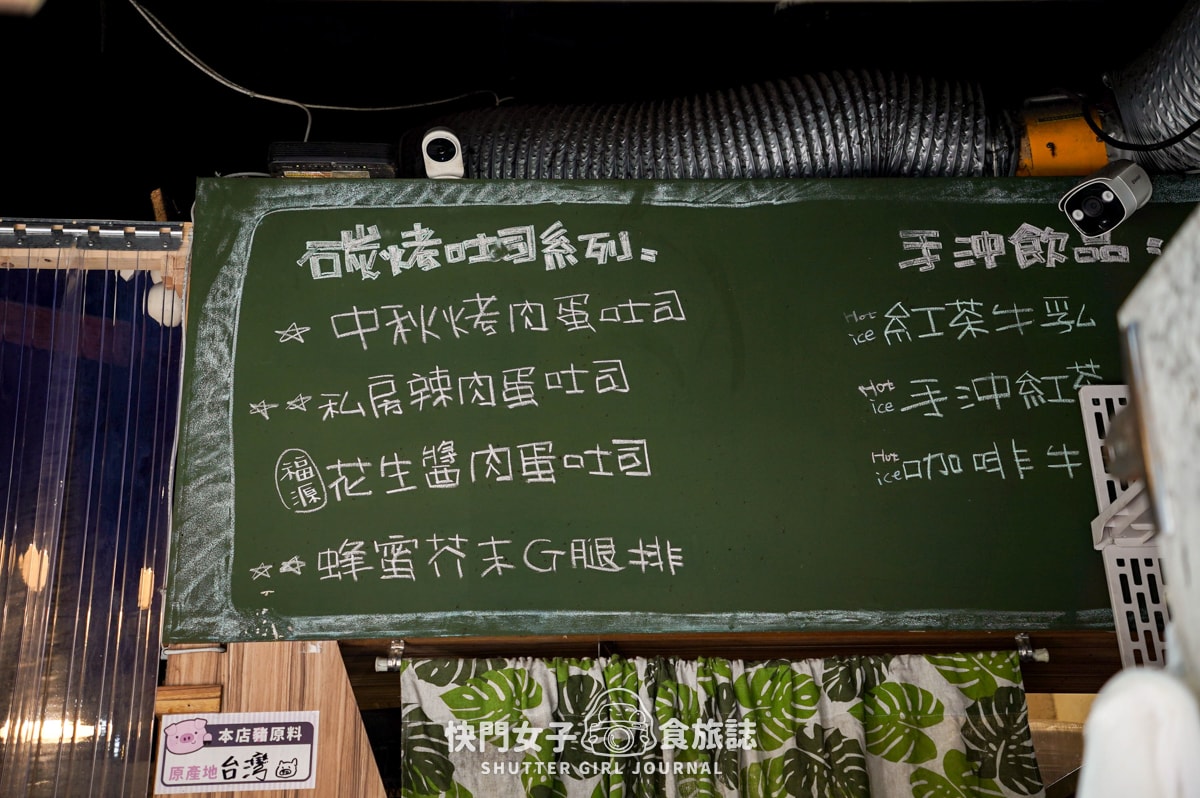 碳烤吐司系列:
☆ 中秋烤肉蛋吐司
☆☆ 私房辣肉蛋吐司
福源 花生醬肉蛋吐司
☆☆ 蜂蜜芥末G腿排
手沖飲品:
Hot ice 紅茶牛乳
Hot ice 手沖紅茶
Hot ice 咖啡牛
本店豬原料
原產地台灣
快門女子 食旅誌
SHUTTER GIRL JOURNAL